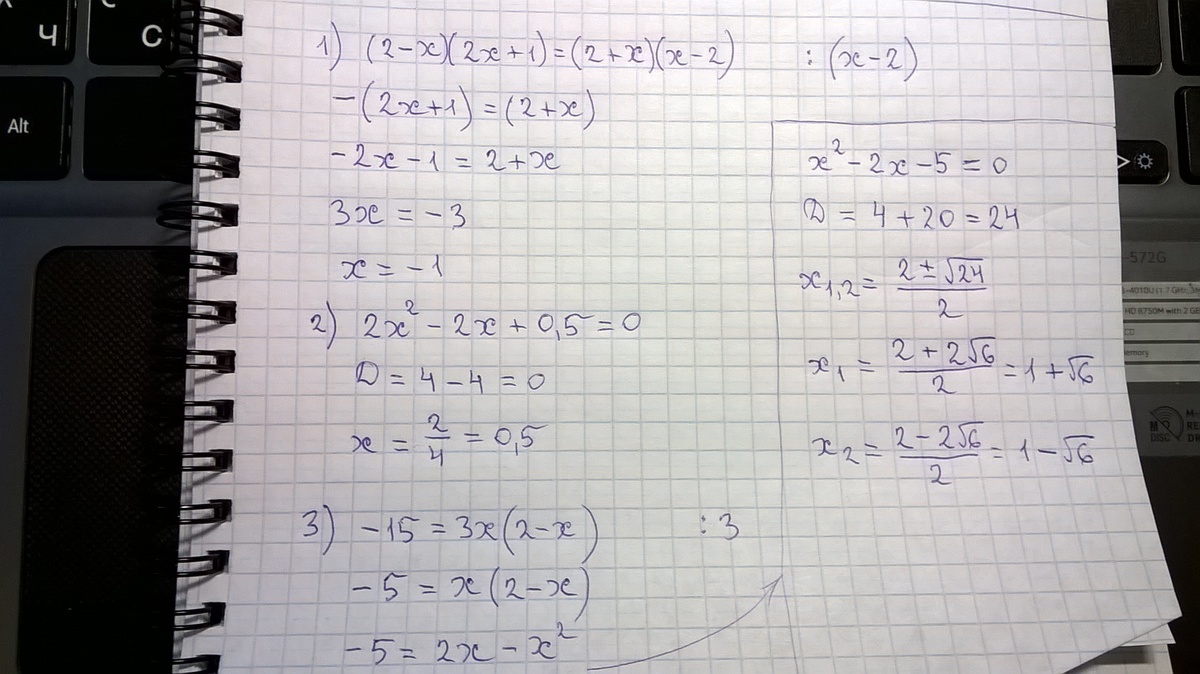 1) (2-x)(2x+1)=(2+x)(x-2) :(x-2)
-(2x+1)=(2+x)
-2x-1=2+x
3x=-3
x=-1
2) 2x²-2x+0,5=0
D=4-4=0
x=2/4=0,5
3) -15=3x(2-x) :3
-5=x(2-x)
-5=2x-x²
x²-2x-5=0
D=4+20=24
x₁,₂=(2±√24)/2
x₁=(2+2√6)/2=1+√6
x₂=(2-2√6)/2=1-√6
Ч
С
Alt
-572G
DISC